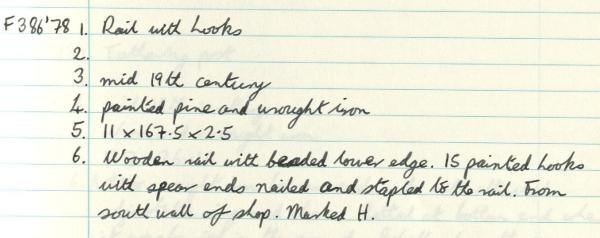 F386'78 1. Rail with hooks
2.
3. mid 19th century
4. painted pine and wrought iron
5. 11 x 167.5 x 2.5
6. Wooden rail with beaded lower edge. 15 painted hooks
with spear ends nailed and stapled to the rail. From
south wall of shop. Marked H.